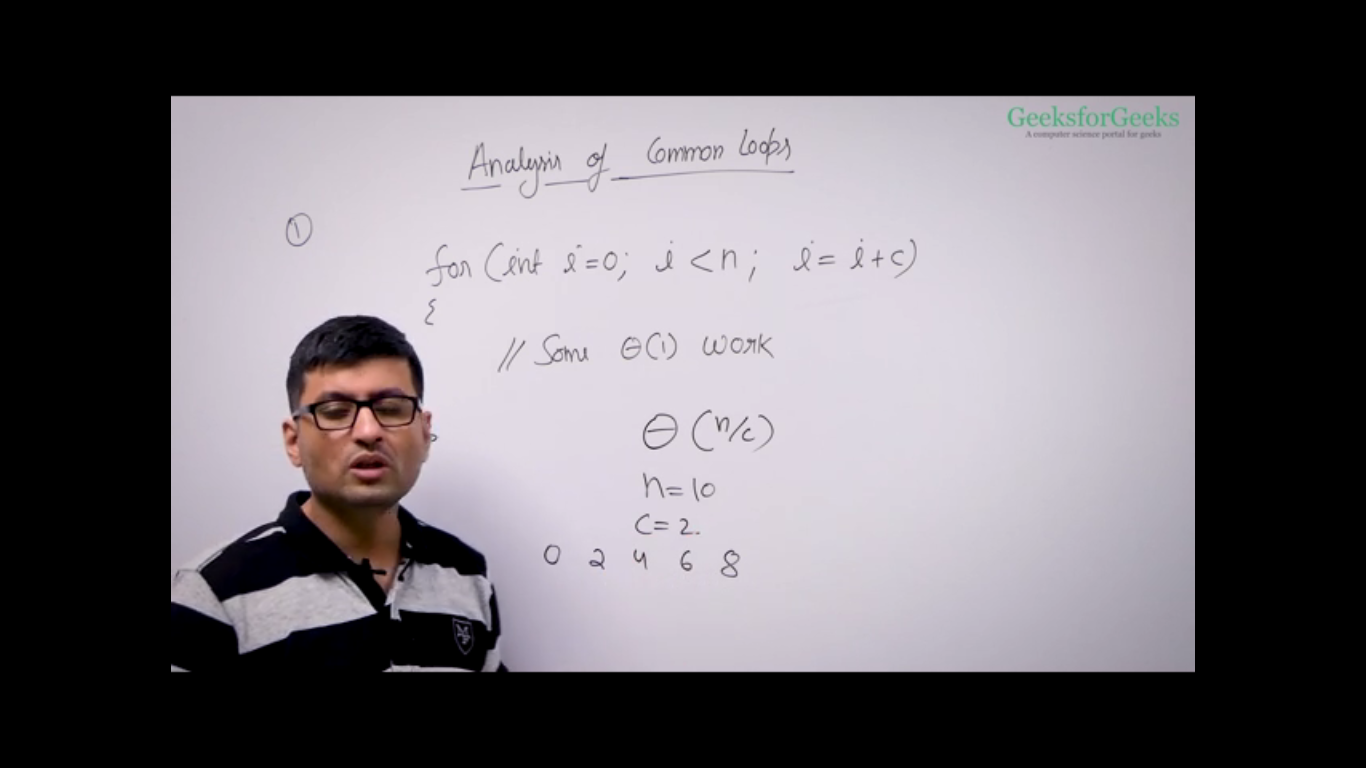 GeeksforGeeks
A computer science portal for geeks
Analysis of Common Loops
①
for (int i=0; i<n; i=i+c)
{
// Some Θ(1) work
Θ (n/c)
n=10
c=2.
0 2 4 6 8